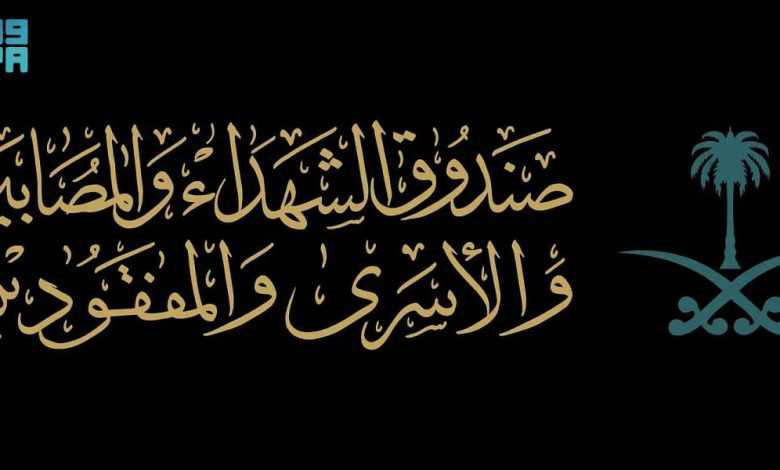 صندوق الشهداء والمصابي
والأسرى والمفقودين
PA